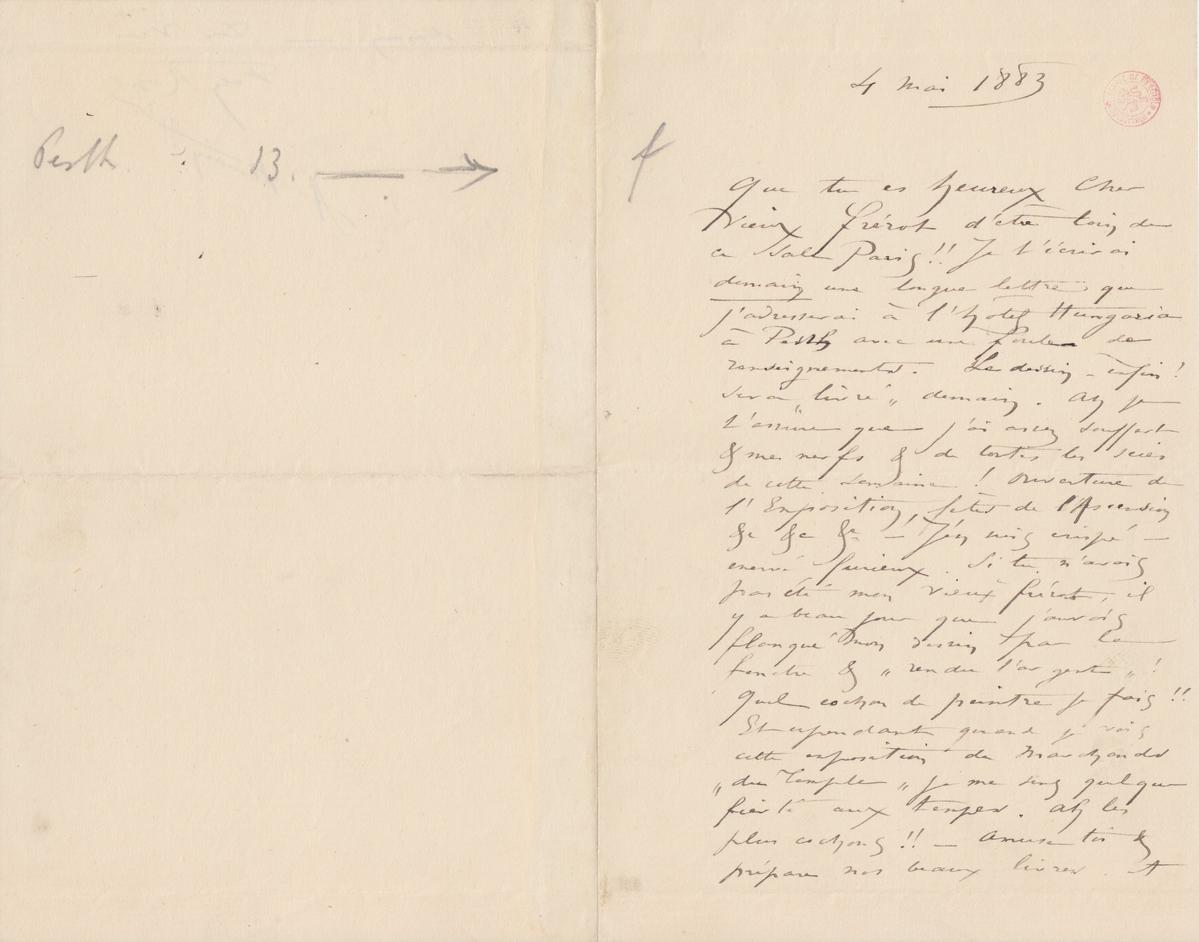 Pesth 13.
4 mai 1883
Que tu es heureux Cher
Vieux frérot d'être loin de
ce Sale Paris!! Je t'écrirai
demain une longue lettre que
j'adresserai à l'hotel Hungaria
à Pesth avec une foule de
renseignements. Le dessin - enfin!
sera „livré„ demain. Ah je
t'assure que j'ai assez souffert
& mes nerfs & de toutes les scies
de cette semaine! Ouverture de
l'Exposition, fêtes de l'Ascension
&c &c &c — J'en suis crispé —
enervé furieux. Si tu n'avais
pas été mon vieux frérot, il
y a beau jour que j'aurais
flanqué mon dessin par la
fenetre & „rendu l'argent„!
Quel cochon de peintre je fais!!
Et cependant quand je vois
cette exposition de Marchands
„du Temple„ je me sens quelque
fierté aux tempes. Ah les
plus cochons!! — Amuse toi &
prépare nos beaux livres. A